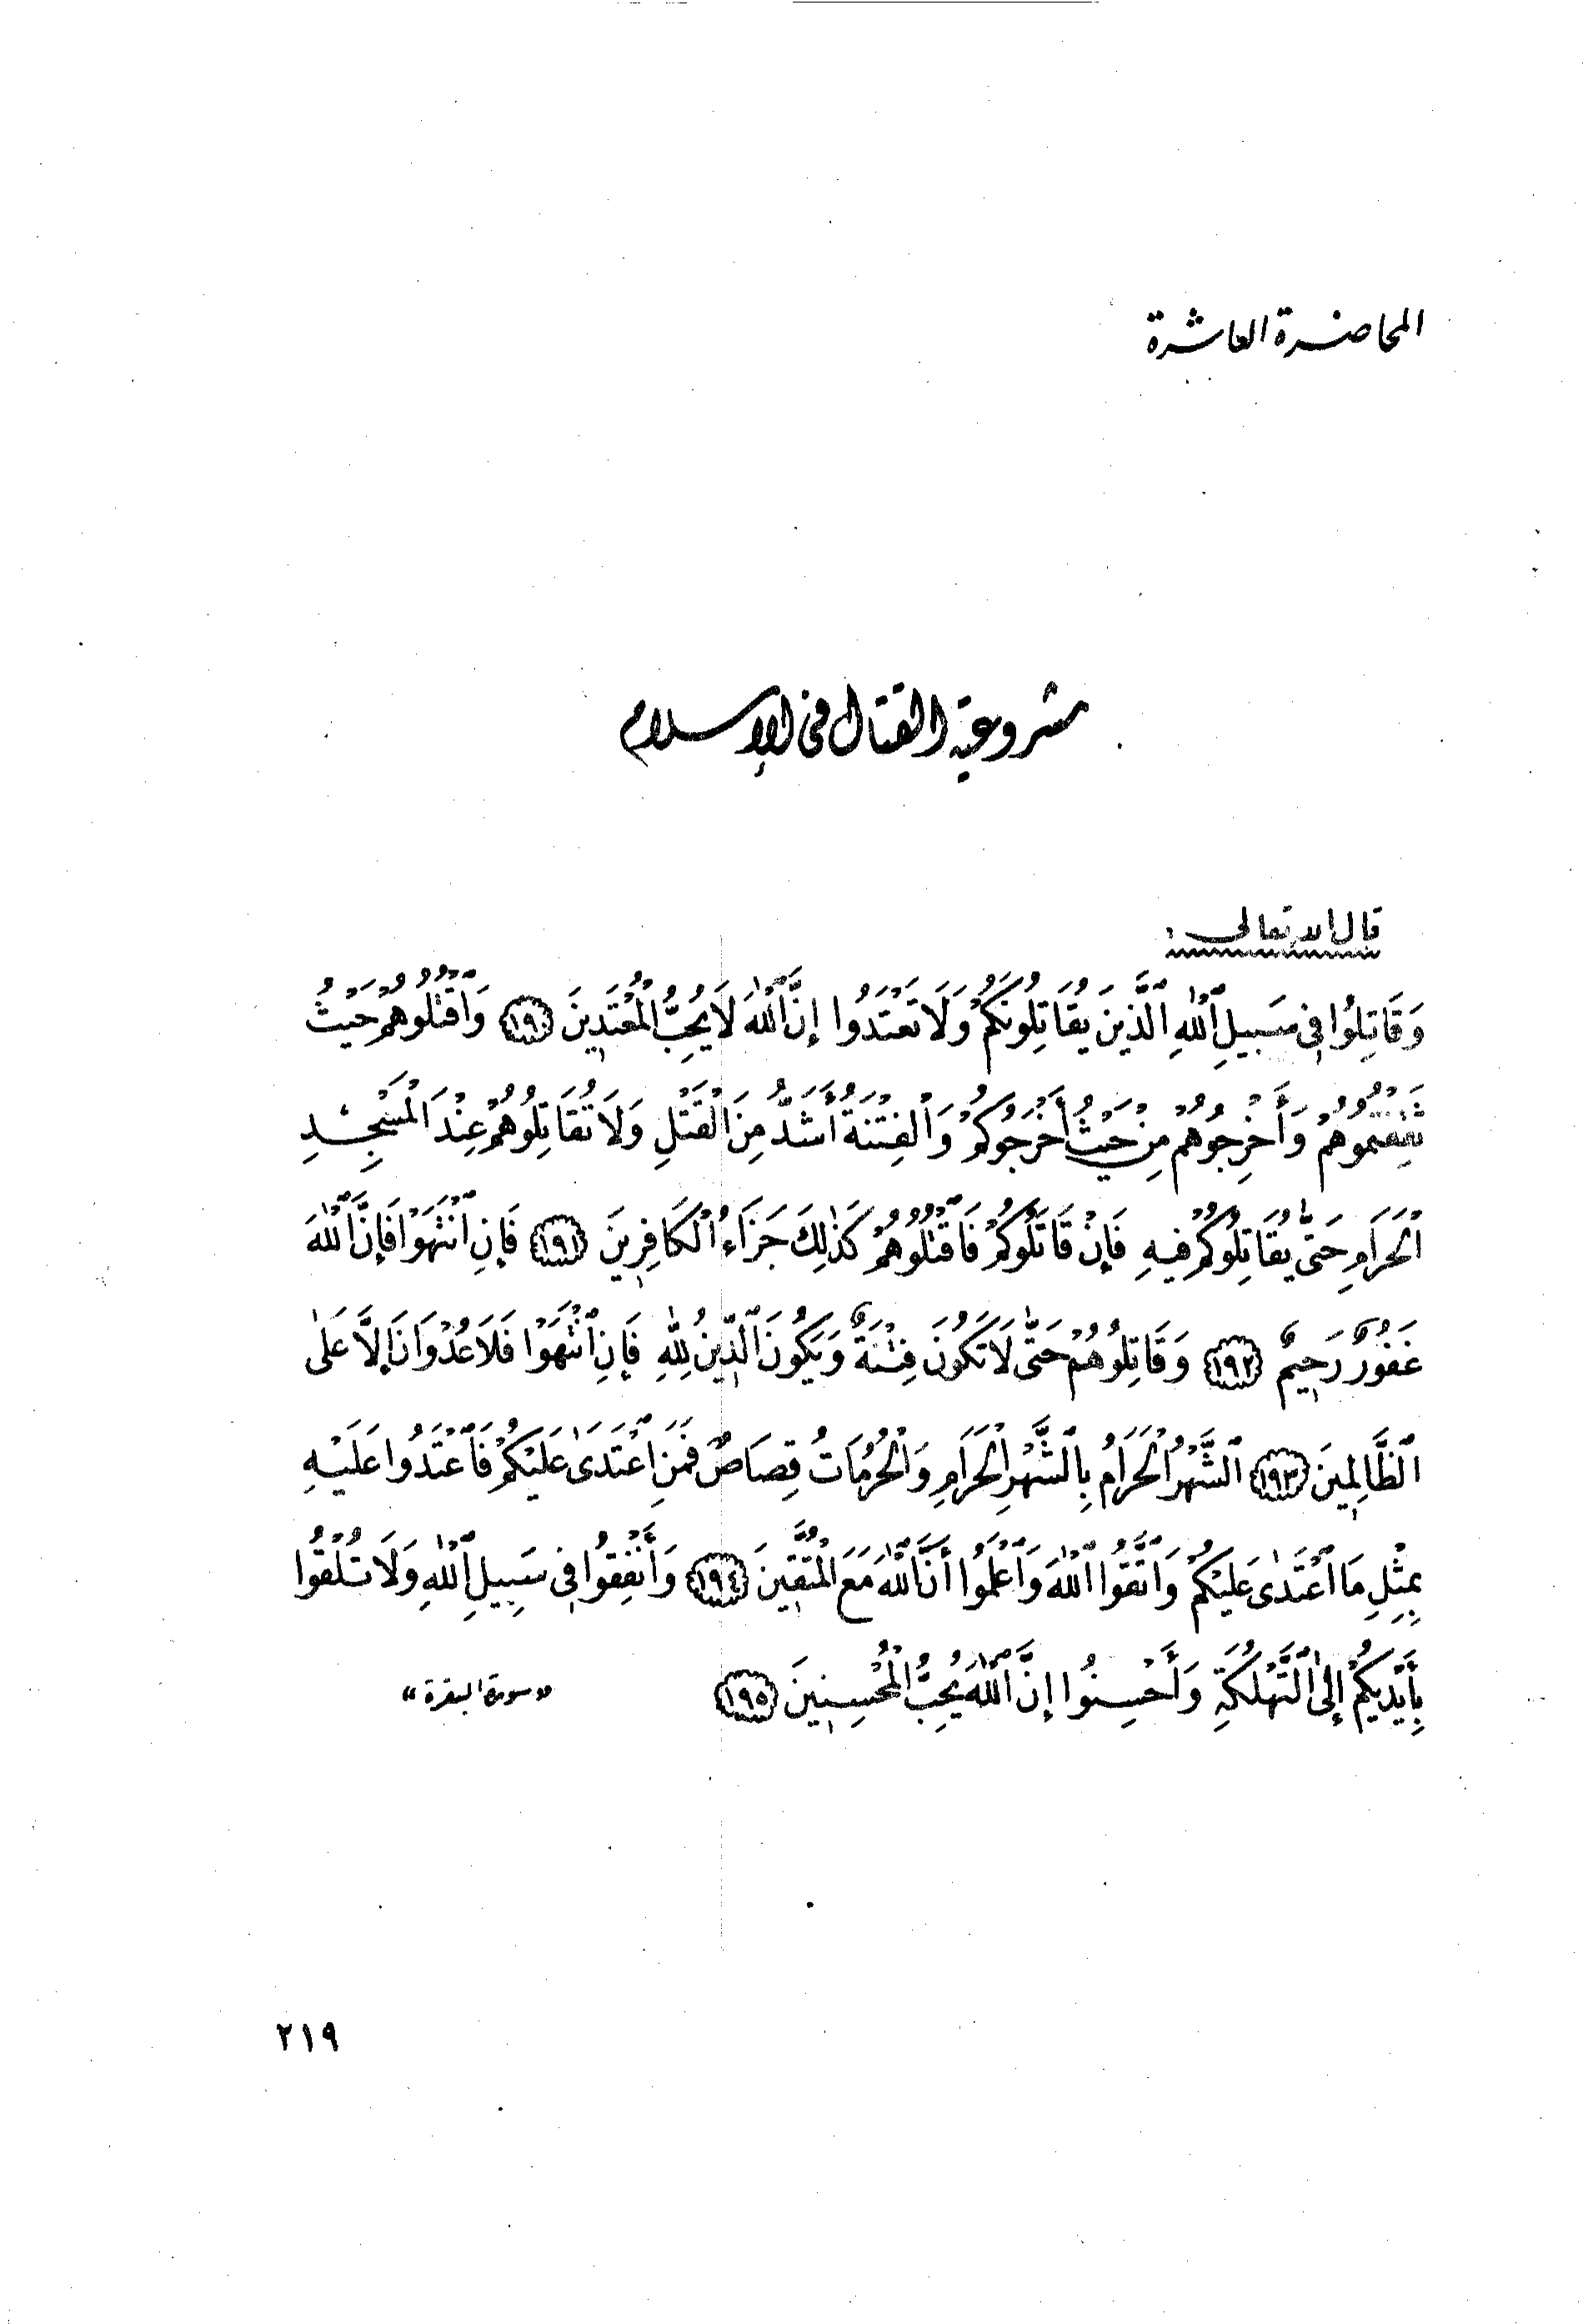 المحاضرة العاشرة
مشروعية القتال في الإسلام
قال الله تعالى :
وَقَاتِلُوا فِي سَبِيلِ ٱللَّهِ ٱلَّذِينَ يُقَاتِلُونَكُمْ وَلَا تَعْتَدُوا إِنَّ ٱللَّهَ لَا يُحِبُّ ٱلْمُعْتَدِينَ ١٩٠ وَٱقْتُلُوهُمْ حَيْثُ
ثَقِفْتُمُوهُمْ وَأَخْرِجُوهُم مِنْ حَيْثُ أَخْرَجُوكُمْ وَٱلْفِتْنَةُ أَشَدُّ مِنَ ٱلْقَتْلِ وَلَا تُقَاتِلُوهُمْ عِنْدَ ٱلْمَسْجِدِ
ٱلْحَرَامِ حَتَّىٰ يُقَاتِلُوكُمْ فِيهِ فَإِنْ قَاتَلُوكُمْ فَٱقْتُلُوهُمْ كَذَٰلِكَ جَزَاءُ ٱلْكَافِرِينَ ١٩١ فَإِنِ ٱنْتَهَوْا فَإِنَّ ٱللَّهَ
غَفُورٌ رَحِيمٌ ١٩٢ وَقَاتِلُوهُمْ حَتَّىٰ لَا تَكُونَ فِتْنَةٌ وَيَكُونَ ٱلدِّينُ لِلَّهِ فَإِنِ ٱنْتَهَوْا فَلَا عُدْوَانَ إِلَّا عَلَى
ٱلظَّالِمِينَ ١٩٣ ٱلشَّهْرُ ٱلْحَرَامُ بِٱلشَّهْرِ ٱلْحَرَامِ وَٱلْحُرُمَاتُ قِصَاصٌ فَمَنِ ٱعْتَدَىٰ عَلَيْكُمْ فَٱعْتَدُوا عَلَيْهِ
بِمِثْلِ مَا ٱعْتَدَىٰ عَلَيْكُمْ وَٱتَّقُوا ٱللَّهَ وَٱعْلَمُوا أَنَّ ٱللَّهَ مَعَ ٱلْمُتَّقِينَ ١٩٤ وَأَنْفِقُوا فِي سَبِيلِ ٱللَّهِ وَلَا تُلْقُوا
بِأَيْدِيكُمْ إِلَى ٱلتَّهْلُكَةِ وَأَحْسِنُوا إِنَّ ٱللَّهَ يُحِبُّ ٱلْمُحْسِنِينَ ١٩٥ «سورة البقرة»
٢١٩